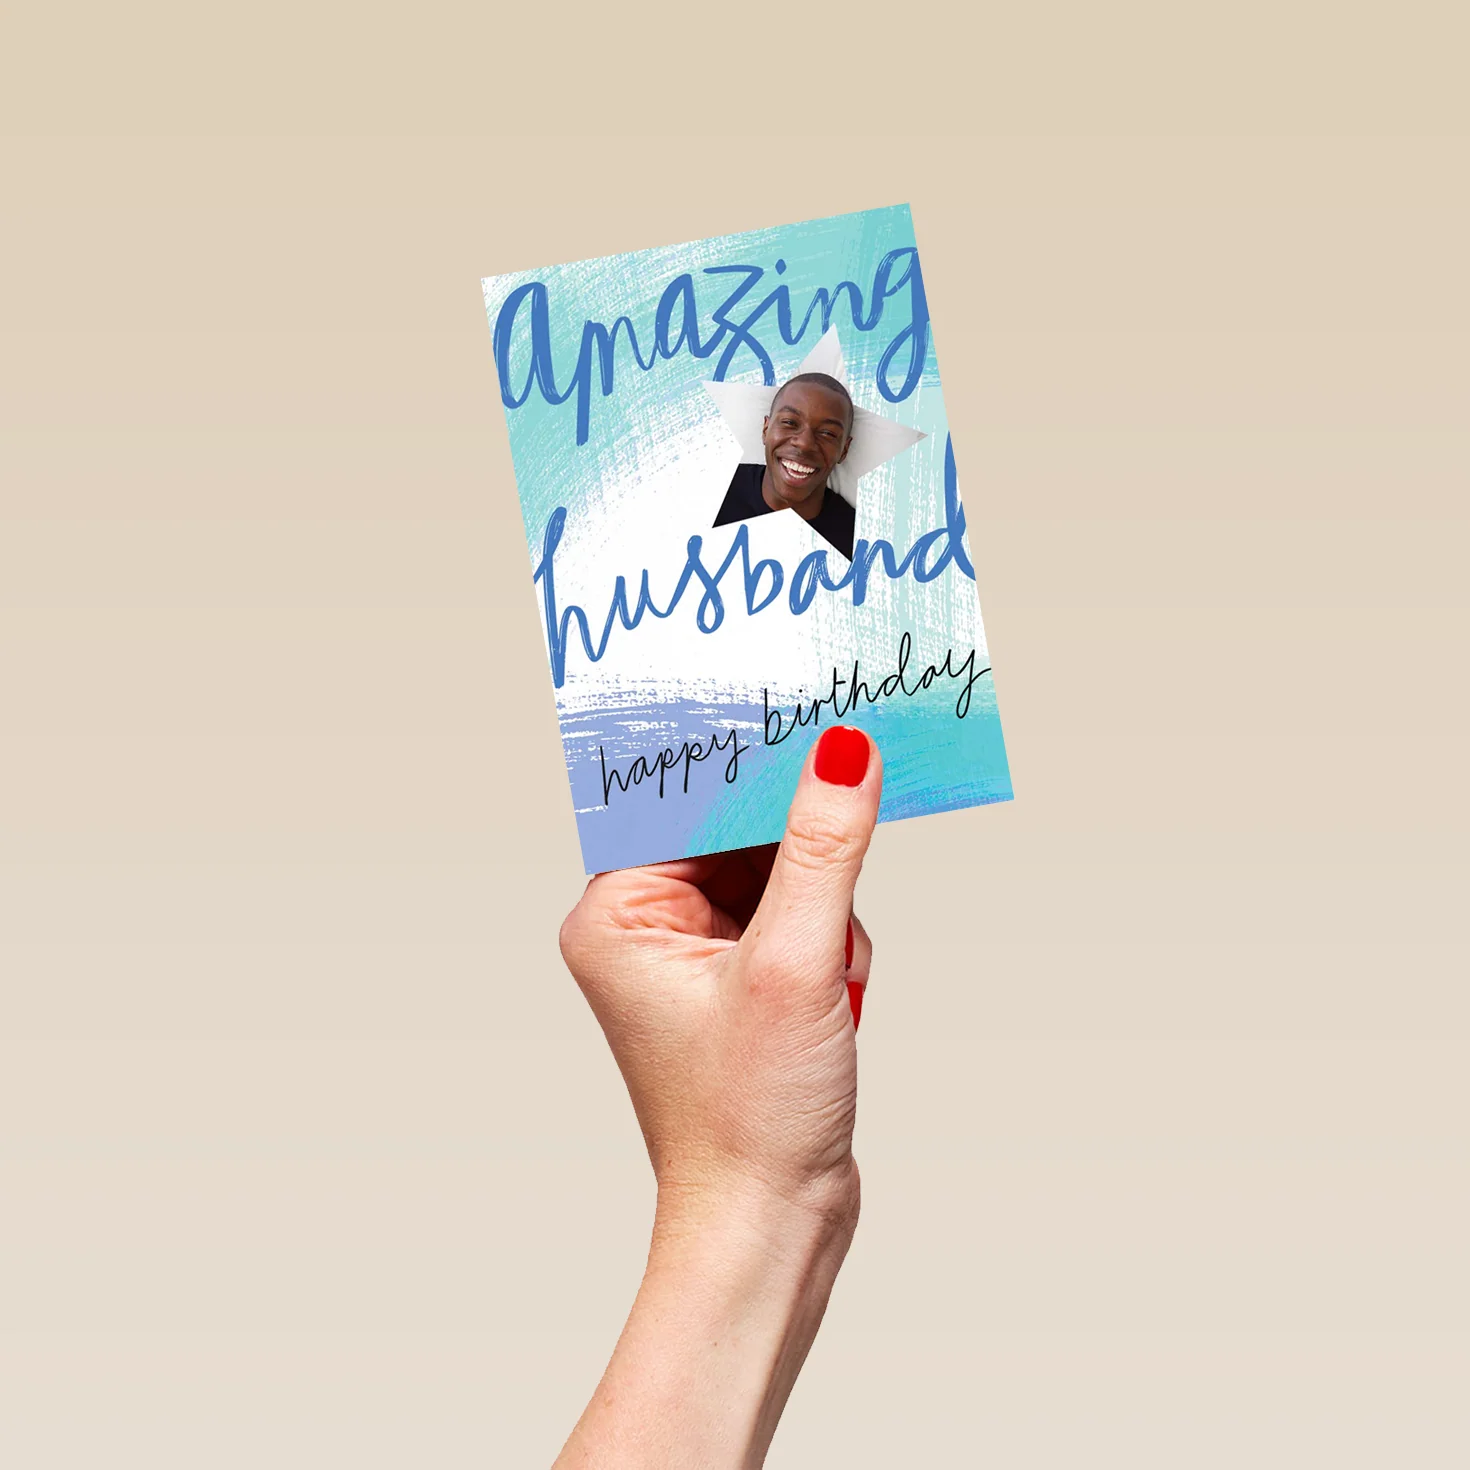 amazing
husband
happy birthday